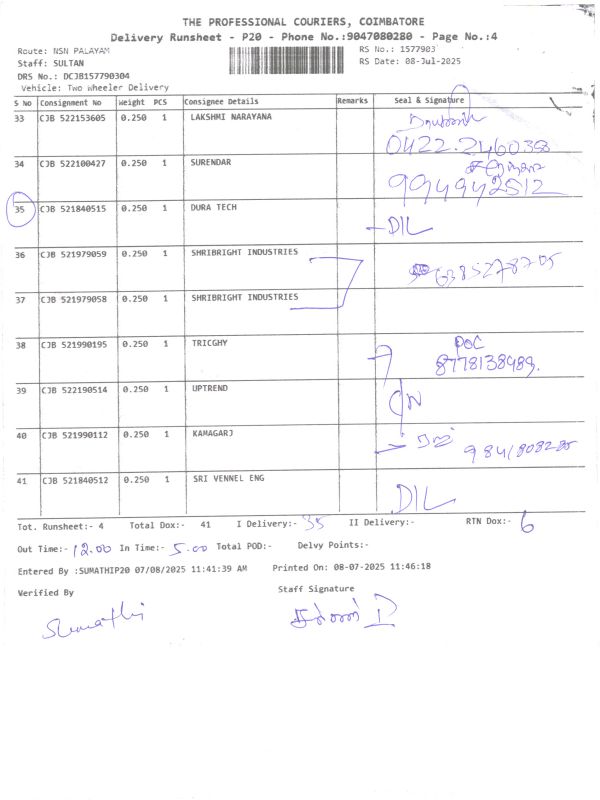 THE PROFESSIONAL COURIERS, COIMBATORE
Delivery Runsheet - P20 - Phone No.:9047080280 - Page No.:4
Route: NSN PALAYAM RS No.: 1577903
Staff: SULTAN RS Date: 08-Jul-2025
DRS No.: DCJB157790304
Vehicle: Two Wheeler Delivery
S No Consignment No Weight PCS Consignee Details Remarks Seal & Signature
33 CJB 522153605 0.250 1 LAKSHMI NARAYANA
0422.246038
34 CJB 522100427 0.250 1 SURENDAR
9949942512
35 CJB 521840515 0.250 1 DURA TECH
DIL
36 CJB 521979059 0.250 1 SHRIBRIGHT INDUSTRIES
6385278705
37 CJB 521979058 0.250 1 SHRIBRIGHT INDUSTRIES
38 CJB 521990195 0.250 1 TRICGHY POC
8778138489.
39 CJB 522190514 0.250 1 UPTREND
40 CJB 521990112 0.250 1 KAMAGARJ
41 CJB 521840512 0.250 1 SRI VENNEL ENG
DIL
Tot. Runsheet:- 4 Total Dox:- 41 I Delivery:- 35 II Delivery:- RTN Dox:- 6
Out Time:- 12.00 In Time:- 5.00 Total POD:- Delvy Points:-
Entered By :SUMATHIP20 07/08/2025 11:41:39 AM Printed On: 08-07-2025 11:46:18
Verified By Staff Signature
Sumathi